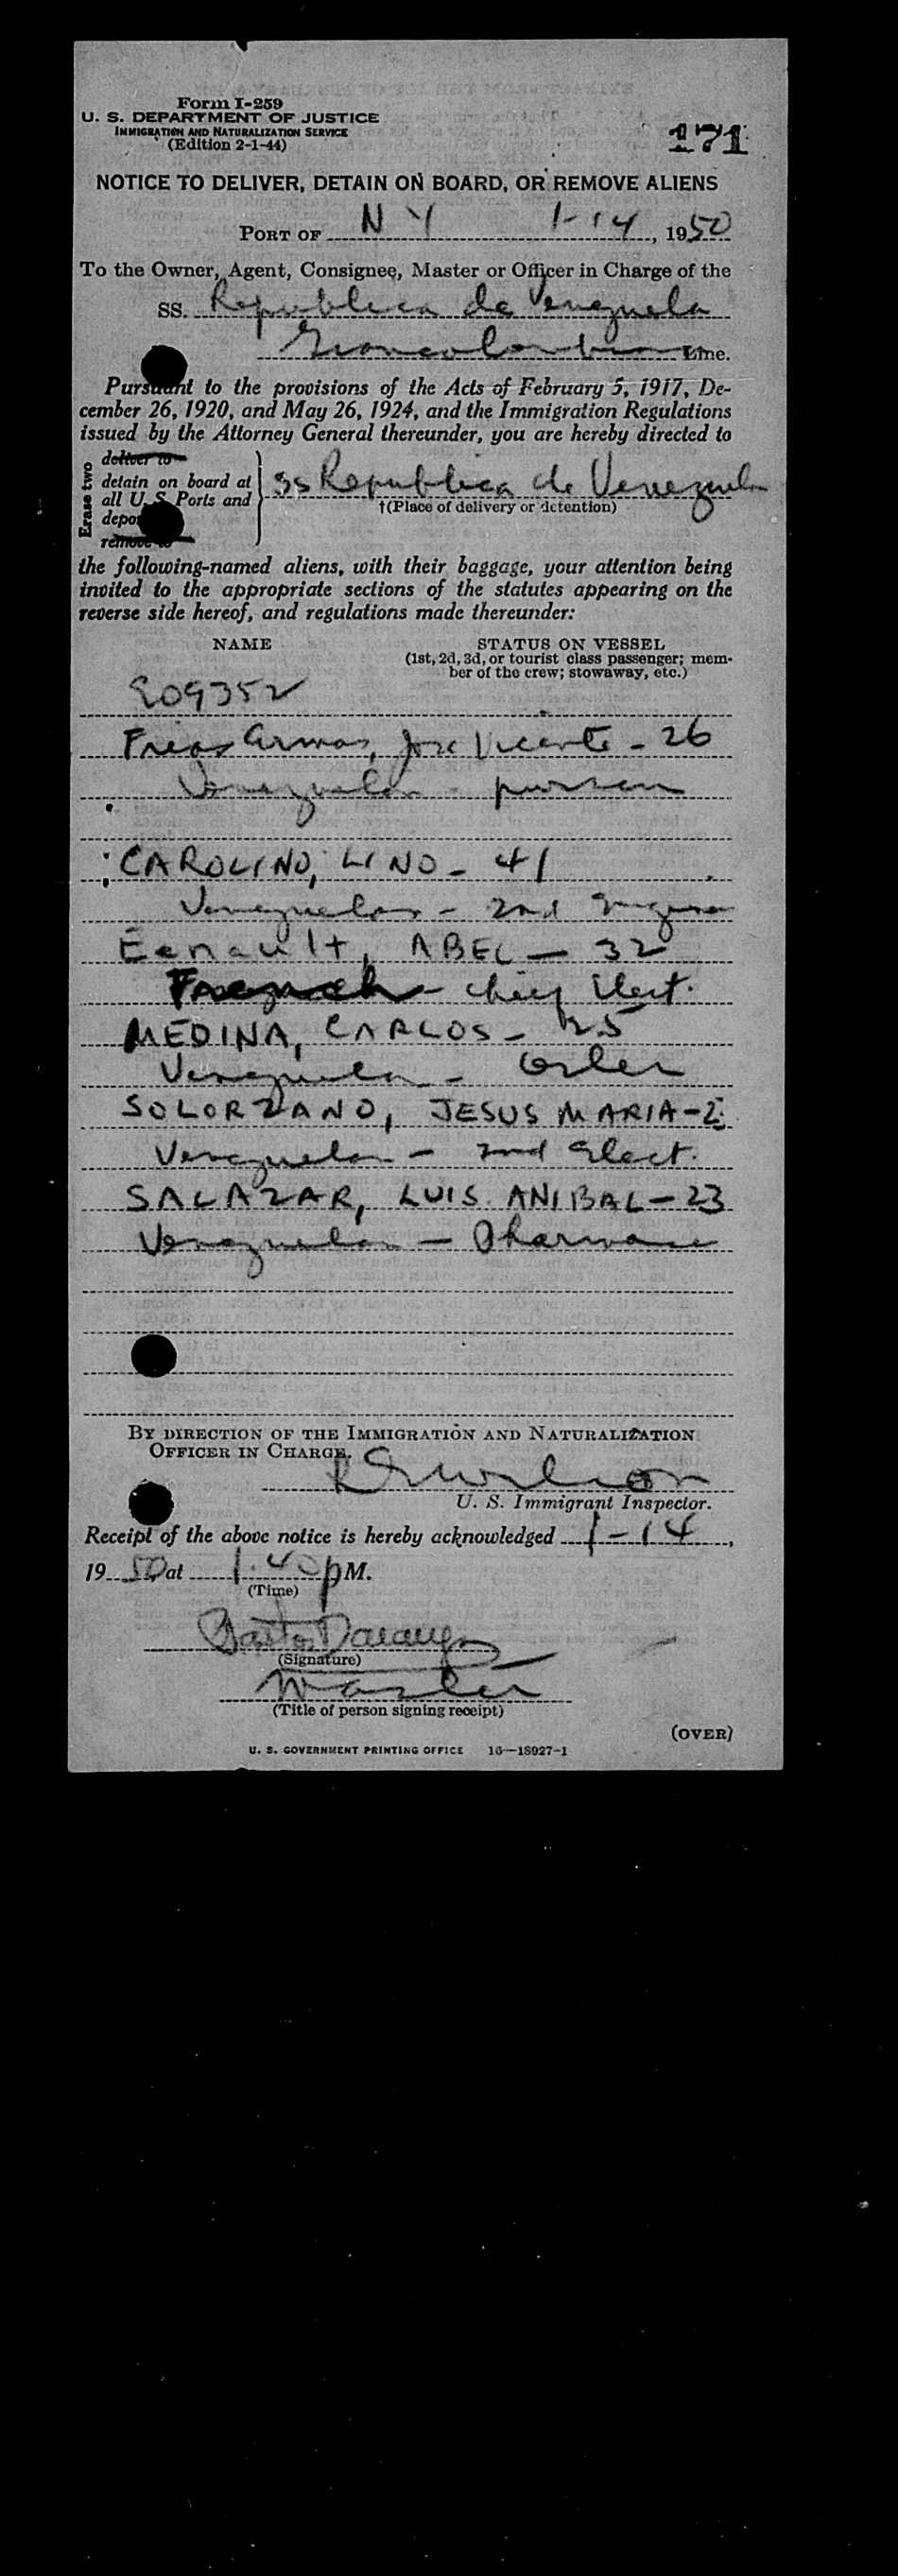 Form I-259
U. S. DEPARTMENT OF JUSTICE
IMMIGRATION AND NATURALIZATION SERVICE
(Edition 2-1-44)
171
NOTICE TO DELIVER, DETAIN ON BOARD, OR REMOVE ALIENS
PORT OF N Y 1-14, 1950
To the Owner, Agent, Consignee, Master or Officer in Charge of the
SS. Republica de Venezuela
Grancolombiana Line.
Pursuant to the provisions of the Acts of February 5, 1917, De-
cember 26, 1920, and May 26, 1924, and the Immigration Regulations
issued by the Attorney General thereunder, you are hereby directed to
Erase two
deliver to
detain on board at
all U. S. Ports and
depo
remove to
SS Republica de Venezuela
†(Place of delivery or detention)
the following-named aliens, with their baggage, your attention being
invited to the appropriate sections of the statutes appearing on the
reverse side hereof, and regulations made thereunder:
NAME
STATUS ON VESSEL
(1st, 2d, 3d, or tourist class passenger; mem-
ber of the crew; stowaway, etc.)
909352
Frias Armas, Jose Vicente - 26
Venezuelan - purser
CAROLINO, LINO - 41
Venezuelan - 2nd Engineer
Eenault, ABEL - 32
French - chief Elect.
MEDINA, CARLOS - 25
Venezuelan - Oiler
SOLORZANO, JESUS MARIA - 2
Venezuelan - 2nd Elect.
SALAZAR, LUIS ANIBAL - 23
Venezuelan -
BY DIRECTION OF THE IMMIGRATION AND NATURALIZATION
OFFICER IN CHARGE.
U. S. Immigrant Inspector.
Receipt of the above notice is hereby acknowledged 1-14,
1950 at 1.40 pM.
(Time)
(Signature)
Master
(Title of person signing receipt)
(OVER)
U. S. GOVERNMENT PRINTING OFFICE 16—18027-1